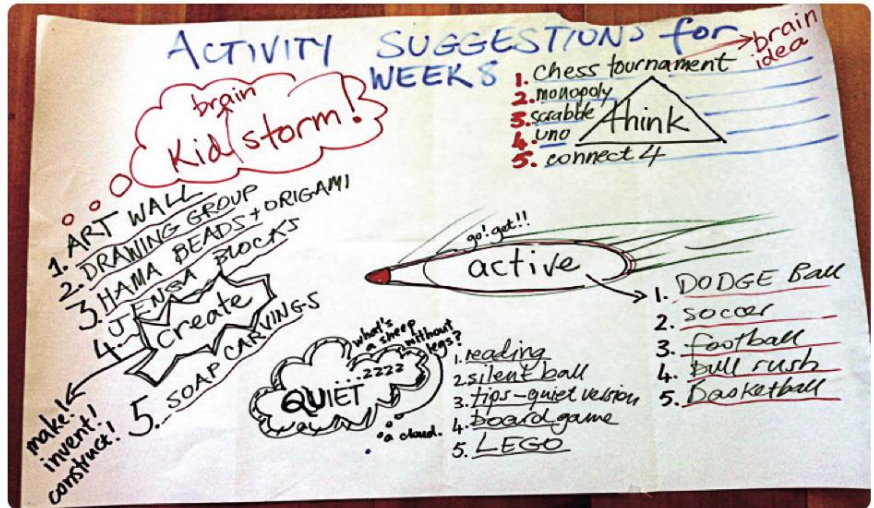 ACTIVITY SUGGESTIONS for
WEEK 8
brain
idea
brain
Kid storm!
1. chess tournament
2. monopoly
3. scrabble
4. uno
5. connect 4
think
1. ART WALL
2. DRAWING GROUP
3. HAMA BEADS + ORIGAMI
4. JENGA BLOCKS
5. SOAP CARVINGS
Create
make!
invent!
construct!
go! get!!
active
1. DODGE Ball
2. soccer
3. football
4. Bull rush
5. Basketball
what's
a sheep
without
legs?
...zzzz
QUIET
a cloud.
1. reading
2. silent ball
3. tips - quiet version
4. board game
5. LEGO